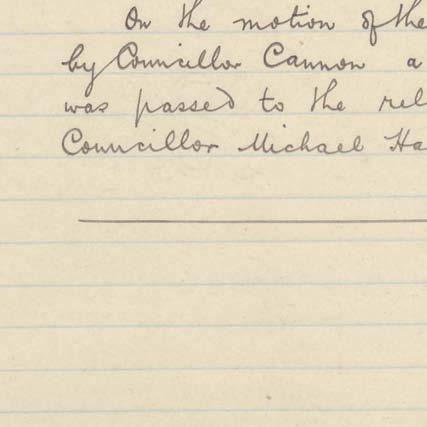 On the motion of the
by Councillor Cannon a
was passed to the rel
Councillor Michael Ha